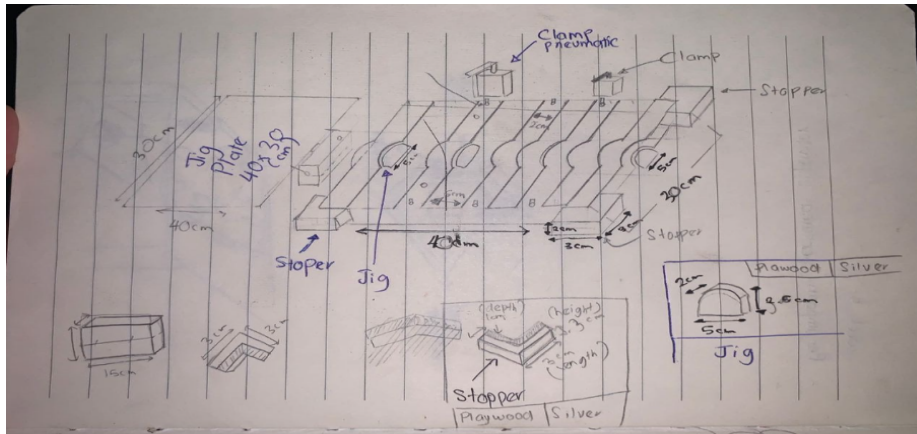 Clamp
pneumatic
Clamp
Stopper
30cm
Jig
Plate
40x30
(cm)
40cm
2cm
5cm
30cm
3cm
3cm
Stopper
Stoper
Jig
Playwood Silver
2cm
5cm
Jig
15cm
3cm
3cm
(depth)
(height)
(length)
Stopper
Playwood Silver